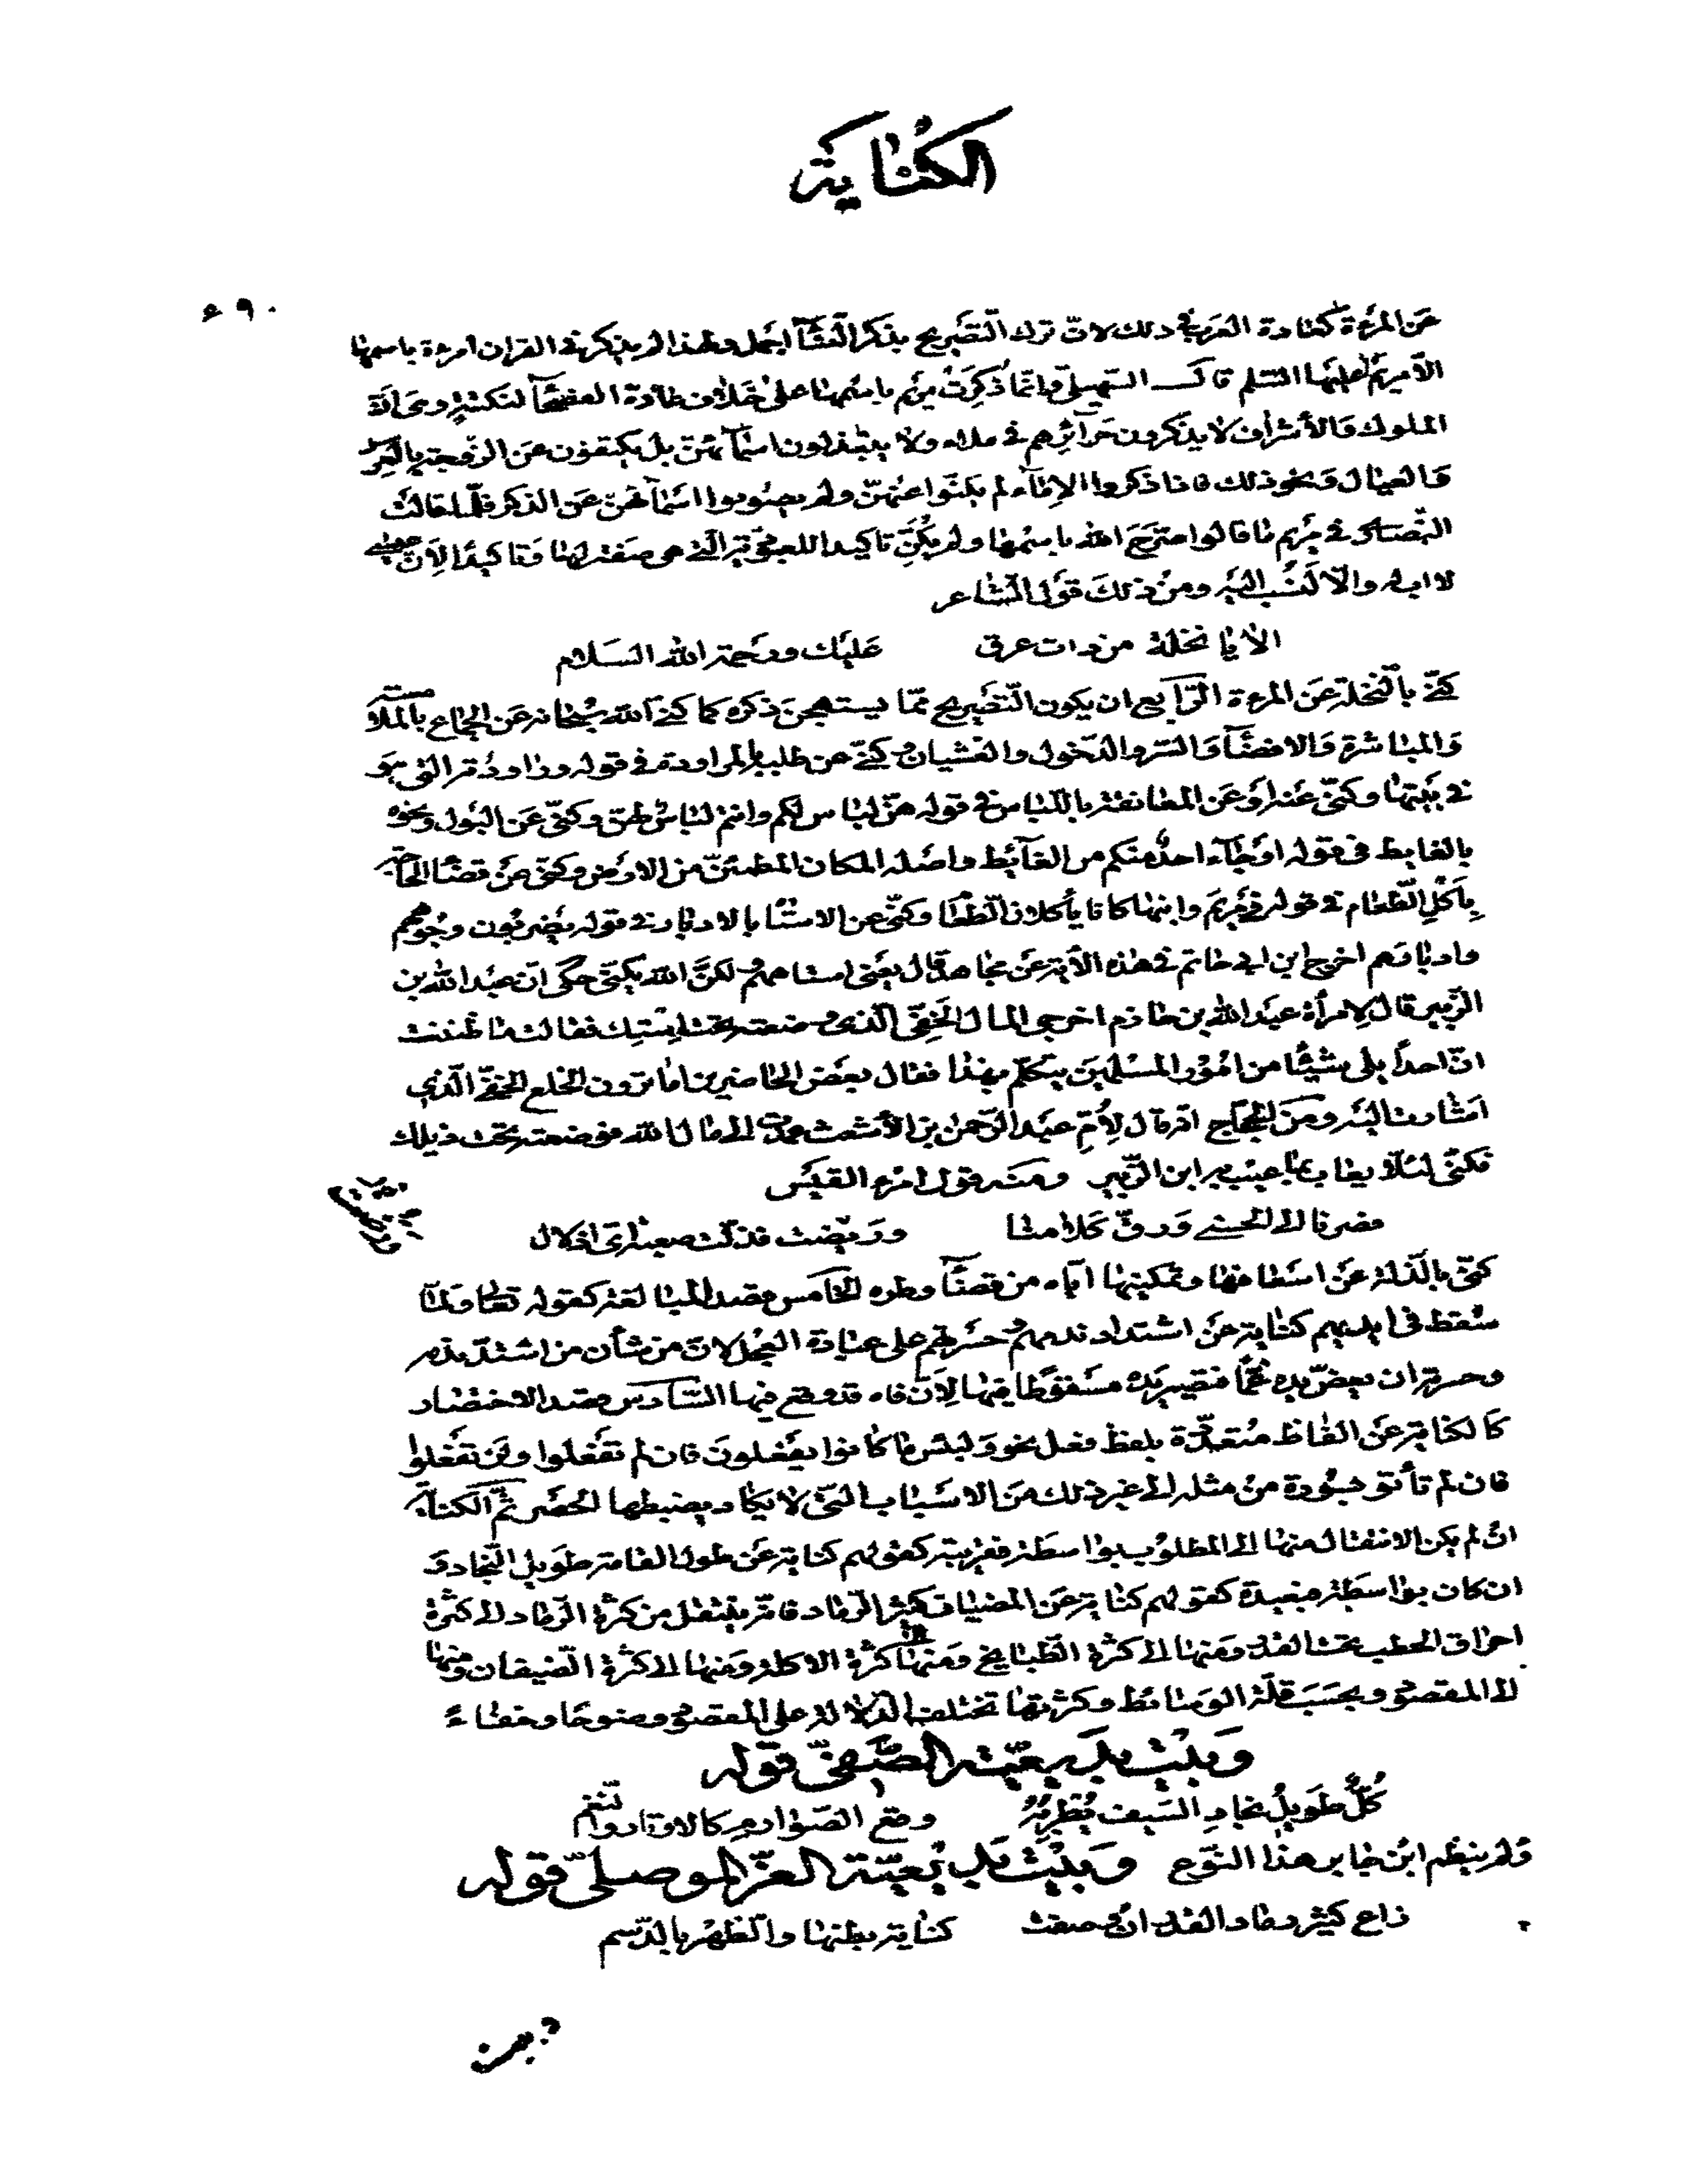 الكناية
٦٩٠
عن المرءة كعادة العرب في ذلك لان ترك التصريح بذكر النسآ اجمل ولهذا لم يذكر في القران امرءة باسمها
الا مريم عليها السلم قال السهيلي وانما ذكرت مريم باسمها على خلاف عادة الفصحآ لنكتة وهي ان
الملوك والاشراف لا يذكرون حرائرهم في ملاء ولا يبتذلون اسمآئهن بل يكنون عن الزوجة بالعرس
والعيال ونحو ذلك فاذا ذكروا الاماء لم يكنوا عنهن ولم يصونوا اسمآئهن عن الذكر فلما قالت
النصارى في مريم ما قالوا صرح الله باسمها ولم يكن تاكيدا للعبودية التي هي صفة لها وتاكيدا لان عيسى
لا اب له والا لنسب اليه ومن ذلك قول الشاعر
الا يا نخلة من ذات عرق عليك ورحمة الله السلام
كنى بالنخلة عن المرءة الرابع ان يكون التصريح مما يستهجن ذكره كما كنى الله سبحانه عن الجماع بالملامسة
والمباشرة والافضآ والسر والدخول والغشيان وكنى عن طلبه بالمراودة في قوله وراودته التي هو
في بيتها وكنى عنه او عن المعانقة باللباس في قوله هن لباس لكم وانتم لباس لهن وكنى عن البول ونحوه
بالغايط في قوله او جآء احد منكم من الغآئط واصله المكان المطمئن من الارض وكنى عن قضآ الحاجة
باكل الطعام في قوله في مريم وابنها كانا يأكلان الطعام وكنى عن الاستاه بالادبار في قوله يضربون وجوههم
وادبارهم اخرج ابن ابي حاتم في هذه الآية عن مجاهد قال يعنى استاههم ولكن الله يكنى حكى ان عبد الله بن
الزبير قال لامرأة عبد الله بن خازم اخرجي المال الخفي الذي وضعته تحت استك فقالت ما ظننت
ان احدا يلي شيئا من امور المسلمين يتكلم بهذا فقال بعض الحاضرين اما ترون الخلع الخفي الذي
اشارت اليه وعن الحجاج انه قال لام عبد الرحمن بن الاشعث عمدت الى مال الله فوضعته تحت ذيلك
فكنى لئلا يعاب بما عيب به ابن الزبير ومنه قول امرء القيس
فصرنا الى الحسنى ورق كلامنا ورضت فذلت صعبة اى اذلال
كنى بالذلة عن اسعافها وتمكينها اياه من قضآ وطره الخامس قصد المبالغة كقوله تعالى ولما
سقط في ايديهم كناية عن اشتداد ندمهم وحسرتهم على عبادة العجل لان من شأن من اشتد ندمه
وحسرته ان يعض يده غما فتصير يده مسقوطا فيها لان فاه قد وقع فيها السادس قصد الاختصار
كالكناية عن الفاظ متعددة بلفظ فعل نحو ولبئس ما كانوا يفعلون فان لم تفعلوا ولن تفعلوا
فان لم تأتوا بسورة من مثله الى غير ذلك من الاسباب التي لا يكاد يضبطها الحصر ثم الكناية
ان لم يكن الانتقال منها الى المطلوب بواسطة فقريبة كقولهم كناية عن طول القامة طويل النجاد و
ان كان بواسطة فبعيدة كقولهم كناية عن المضياف كثير الرماد فانه ينتقل من كثرة الرماد الى كثرة
احراق الحطب تحت القدر ومنها الى كثرة الطبايخ ومنها الى كثرة الاكلة ومنها الى كثرة الضيفان ومنها
الى المقصود وبحسب قلة الوسائط وكثرتها تختلف الدلالة على المقصود وضوحا وخفاء
وبيت بديعية الصفي قوله
كل طويل نجاد السيف يطربه وقع الصوارم كالاوتار والنغم
ولم ينظم ابن جابر هذا النوع وبيت بديعية العز الموصلي قوله
داع كثير رماد القدر ان وصفت كناية بطنها والظهر بالدسم